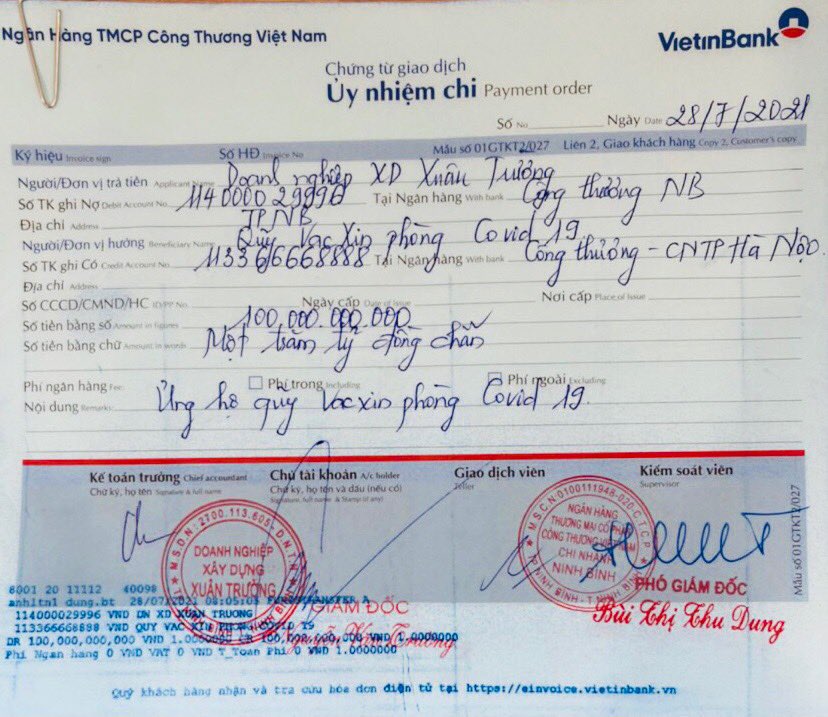 Ngân Hàng TMCP Công Thương Việt Nam
VietinBank
Chứng từ giao dịch
Ủy nhiệm chi Payment order
Số No Ngày Date 28/7/2021
Ký hiệu Invoice sign Số HĐ Invoice No Mẫu số 01GTKT2/027 Liên 2, Giao khách hàng Copy 2, Customer's copy
Người/Đơn vị trả tiền Applicant Name Doanh nghiệp XD Xuân Trường
Số TK ghi Nợ Debit Account No. 114000029996 Tại Ngân hàng With bank Công thương NB
Địa chỉ Address TPNB
Người/Đơn vị hưởng Beneficiary Name Quỹ Vac Xin phòng Covid 19
Số TK ghi Có Credit Account No. 113366668888 Tại Ngân hàng With bank Công thương - CNTP Hà Nội.
Địa chỉ Address
Số CCCD/CMND/HC ID/PP No. Ngày cấp Date of issue Nơi cấp Place of issue
Số tiền bằng số Amount in figures 100.000.000.000
Số tiền bằng chữ Amount in words Một trăm tỷ đồng chẵn
Phí ngân hàng Fee: Phí trong Including Phí ngoài Excluding
Nội dung Remarks: Ủng hộ quỹ Vacxin phòng Covid 19.
Kế toán trưởng Chief accountant Chủ tài khoản A/c holder Giao dịch viên Kiểm soát viên
Chữ ký, họ tên Signature & full name Chữ ký, họ tên và dấu (nếu có) Teller Supervisor
Signature, full name & Stamp (if any)
Mẫu số 01GTKT2/027
M.S.D.N: 2700.113.605
DOANH NGHIỆP
XÂY DỰNG
XUÂN TRƯỜNG
M.S.C.N:0100111948-020-C.T.C.P
NGÂN HÀNG
THƯƠNG MẠI CỔ PHẦN
CÔNG THƯƠNG VIỆT NAM
CHI NHÁNH
NINH BÌNH
TP.NINH BÌNH - T.NINH BÌNH
PHÓ GIÁM ĐỐC
Bùi Thị Thu Dung
GIÁM ĐỐC
Nguyễn Văn Trường
8001 20 11112 40098
anhltn1 dung.bt 28/07/2021 08:05:05
114000029996 VND DN XD XUAN TRUONG
113366668888 VND QUY VAC XIN PHONG COVID 19
DR 100,000,000,000 VND 1.0000000 CR 100,000,000,000 VND 1.0000000
Phi Ngan hang 0 VND VAT 0 VND T_Toan Phi 0 VND 1.0000000
Quý khách hàng nhận và tra cứu hóa đơn điện tử tại https://einvoice.vietinbank.vn